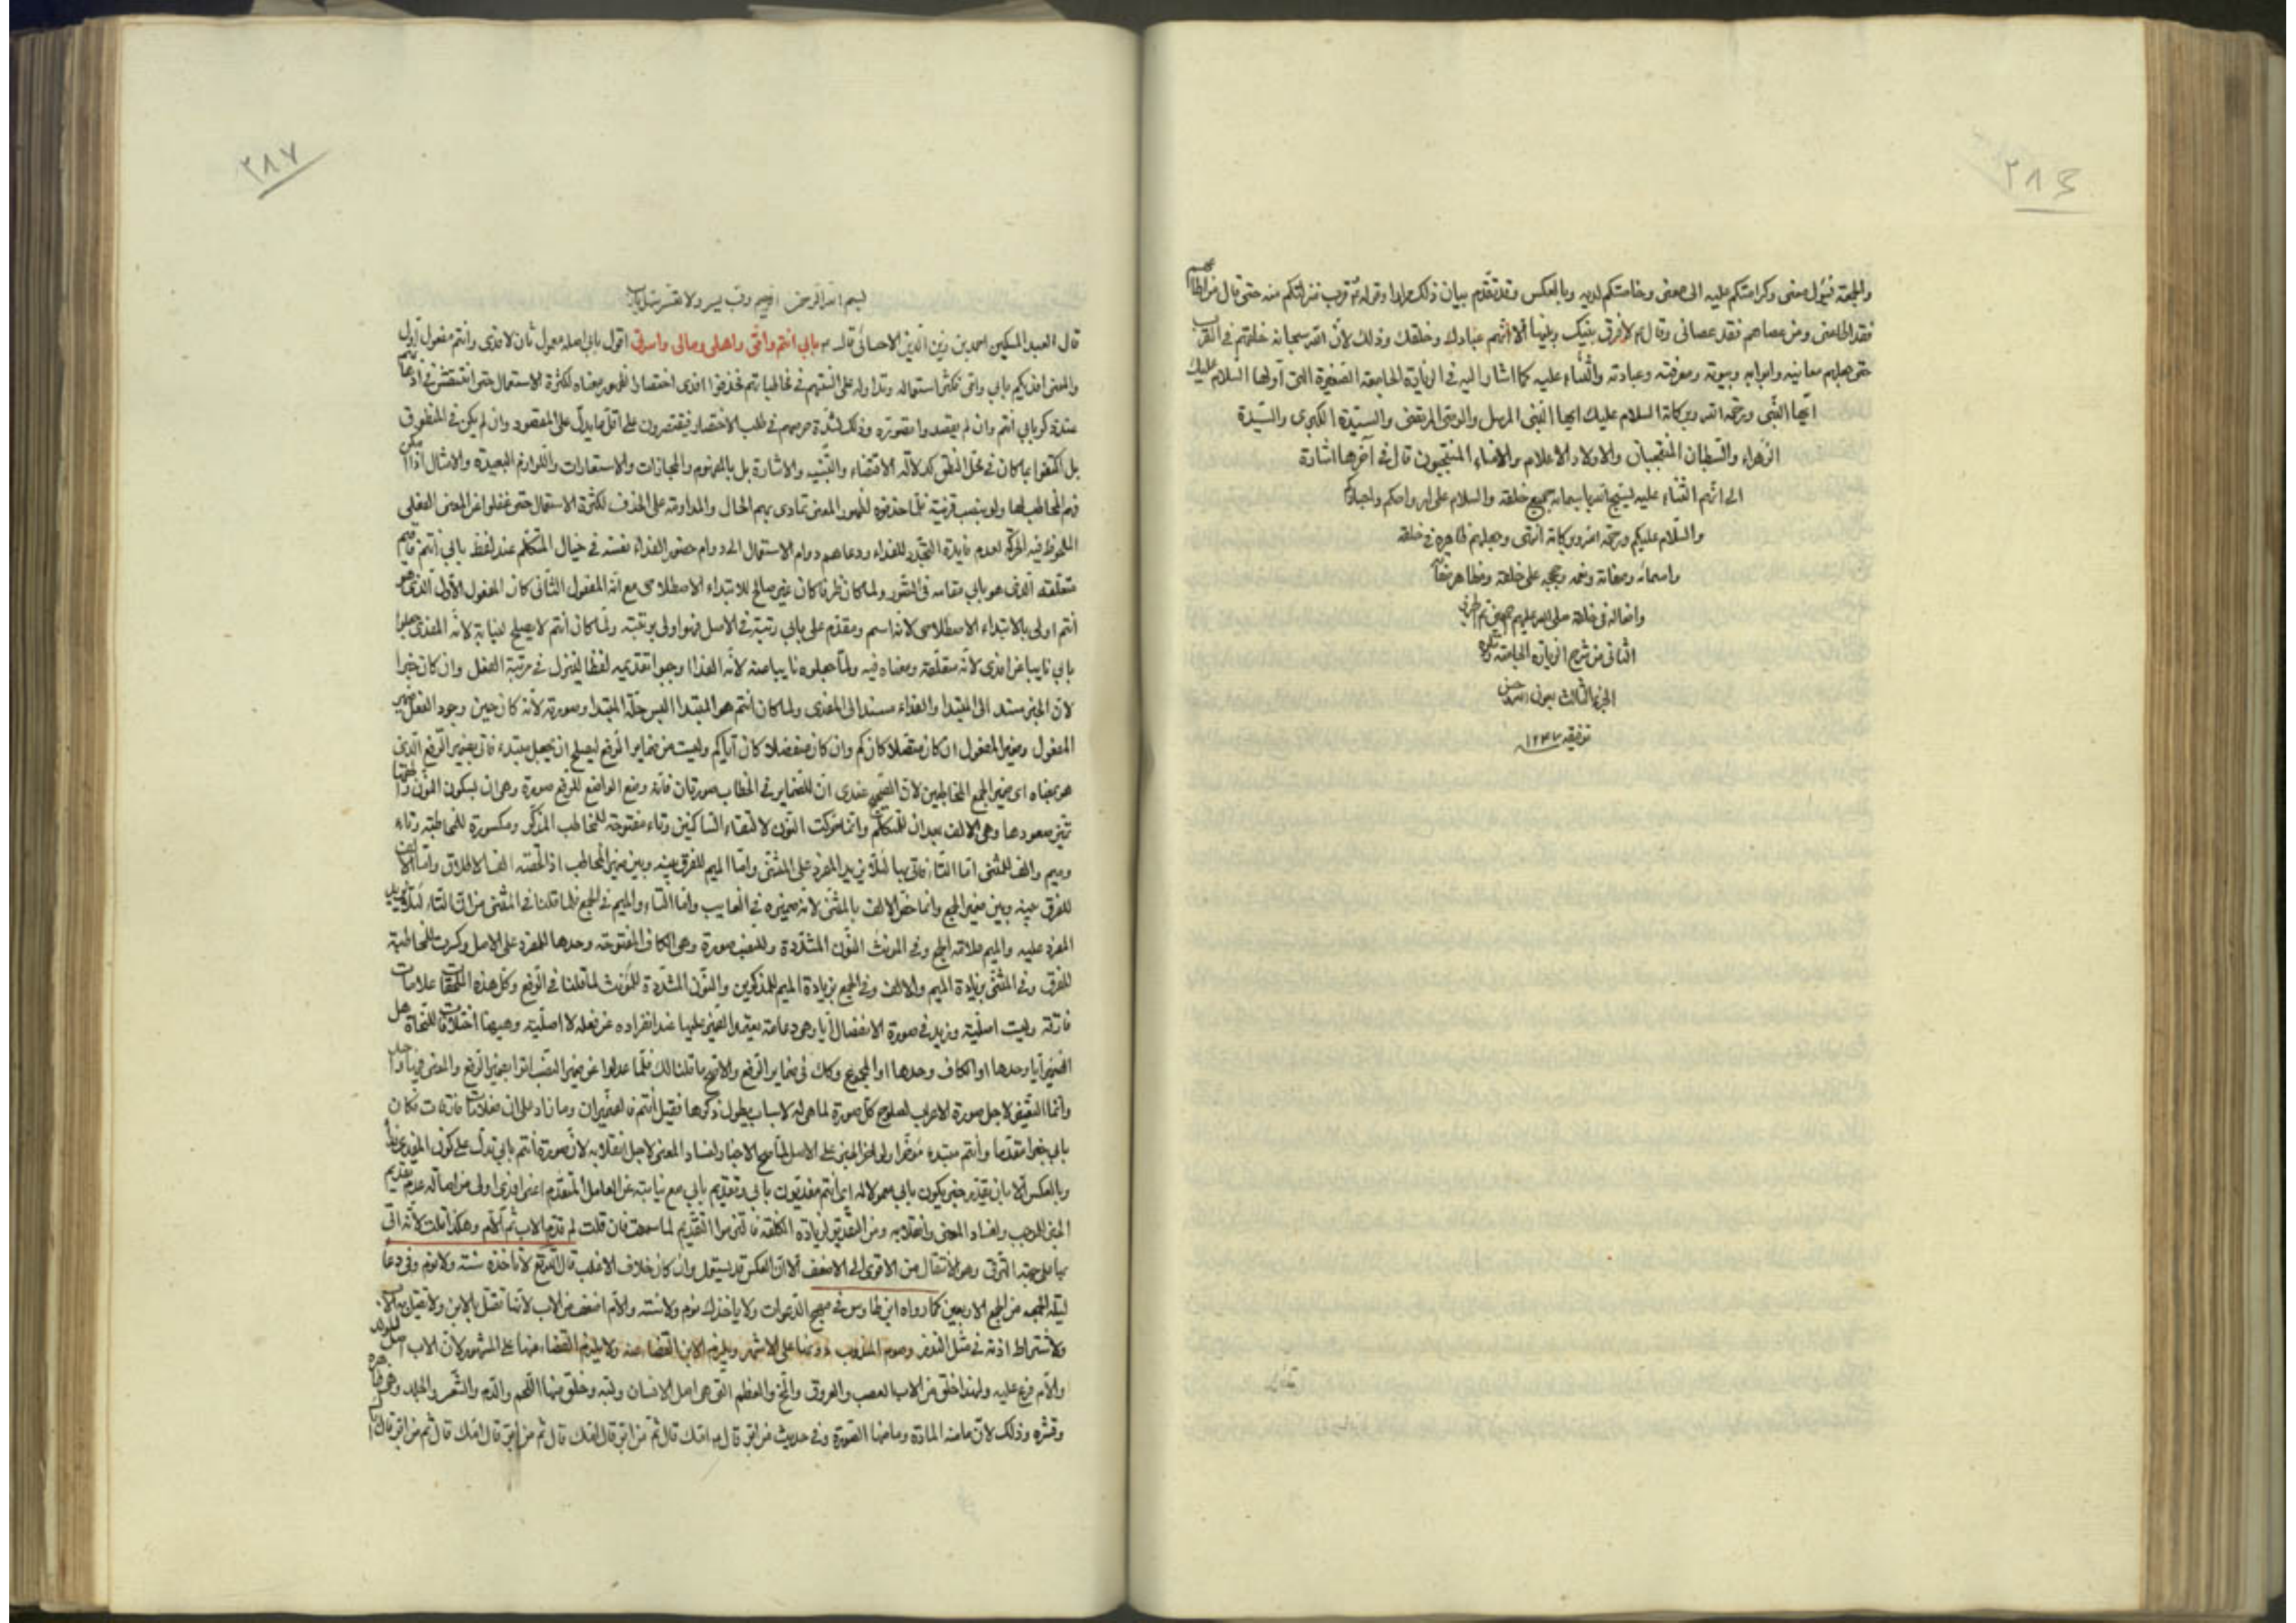 ٢٨٦
والجهة فيئول معنى وكرامتكم عليه الى معنى وخاصتكم لديه وبالعكس وقد تقدم بيان ذلك مرارا وقوله قرب منزلتكم منه حتى قال من اطاعهم
فقد اطاعنى ومن عصاهم فقد عصانى وقال لا فرق بينك وبينها الا انهم عبادك وخلقك وذلك لان الله سبحانه خلقهم فى القرب
حتى جعلهم معانيه وابوابه وبيوته ومعرفته وعبادته والثناء عليه كما اشار اليه فى الزيارة الجامعة الصغيرة التى اولها السلام عليك
ايها النبى ورحمة الله وبركاته السلام عليك ايها النبى المرسل والوصى المرتضى والسيدة الكبرى والسيدة
الزهراء والسبطان المنتجبان والاولاد الاعلام والامناء المنتجبون قال فى آخرها اشارة
الى انهم الثناء عليه ليسبح الله باسمائه جميع خلقه والسلام على ارواحكم واجسادكم
والسلام عليكم ورحمة الله وبركاته انتهى وجعلهم ظاهره فى خلقه
واسمائه وصفاته ونعمه وحججه على خلقه ومظاهر
وافعاله فى خلقه صلى الله عليهم اجمعين تم الجزء
الثانى من شرح الزيارة الجامعة ويتلوه
الجزء الثالث بعون الله وحسن
توفيقه ١٢٤٧
٢٨٧
بسم الله الرحمن الرحيم وب يسر ولا تعسر
قال العبد المسكين احمد بن زين الدين الاحسائى قال بابى انتم وامى واهلى ومالى واسرتى اقول بابى اصله معمول ثان لافدى وانتم مفعول اول
والمعنى افديكم بابى وامى فكثر استعماله وتداوله على السنتهم فى مخاطباتهم فحذفوا افدى اختصارا لظهور معناه لكثرة الاستعمال حتى انتقشت فى اذهانهم
عند ذكر بابى انتم وان لم يقصد وا تصوره وذلك لشدة حرصهم فى طلب الاختصار فيقتصرون على اقل ما يدل على المقصود وان لم يكن فى المنطوق
بل اكتفوا بما كان فى محل النطق كدلالة الاقتضاء والتنبيه والاشارة بل بالمفهوم والمجازات والاستعارات واللوازم البعيدة والامثال اذا امكن
فهم المخاطب لها ولو بنصب قرينة فلما حذفوه لظهور المعنى تمادى بهم الحال والمداومة على الحذف لكثرة الاستعمال حتى غفلوا عن المعنى الفعلى
الملحوظ فيه الحركة لعدم فايدة التجدد للفداء ودعاهم دوام الاستعمال الى دوام حضور الفداء نفسه فى خيال المتكلم عند لفظ بابى انتم
متعلقه الذى هو بابى مقامه فى الشعور ولما كان ظرفا كان غير صالح للابتداء الاصطلاحى مع انه المفعول الثانى كان المفعول الاول الذى هو
انتم اولى بالابتداء الاصطلاحى لانه اسم ومقدم على بابى رتبة فى الاصل فهو اولى برتبته ولما كان انتم لا يصلح لنيابة لانه المفدى جعلوا
بابى نايبا عن افدى لانه متعلقه ومعناه فيه ولما جعلوه نايبا عنه لانه الفداء وجب تقديمه لفظا لينزل فى مرتبة الفعل وان كان خبرا
لان الخبر مسند الى المبتدا والفداء مسند الى المفدى ولما كان انتم هو المبتدا البس حلة المبتدا وصورته لانه كان حين وجود الفعل ضمير
المفعول وضمير المفعول ان كان متصلا كان كم وان كان منفصلا كان اياكم وليست من ضماير الرفع ليصلح ان يجعل مبتدء فاتى بضمير الرفع الذى
هو بمعناه اى ضمير الجمع المخاطبين لان الصحيح عندى ان للضماير فى الخطاب صورتان فانه وضع الواضع للرفع صورة وهى ان بسكون النون
وهى الالف بعد ان للمتكلم وانما حركت النون لالتقاء الساكنين وتاء مفتوحة للمخاطب المذكر ومكسورة للمخاطبة وتاء
وميم والف للمثنى اما التاء فاتى بها لئلا يزيد المفرد على المثنى واما الميم للفرق بينه وبين ضمير المخاطب اذا لحقته الف الاطلاق واما الالف
للفرق بينه وبين ضمير الجمع وانما خص الالف بالمثنى لانه ضميره فى الغايب واما التاء والميم فى الجمع فلما قلنا فى المثنى من ان التاء لئلا يزيد
المفرد عليه والميم علامة الجمع وفى المونث النون المشددة وللنصب صورة وهى الكاف المفتوحة وحدها للمفرد على الاصل وكسرت للمخاطبة
للفرق وفى المثنى بزيادة الميم والالف وفى الجمع بزيادة الميم للمذكرين والنون المشددة للمونث لما قلنا فى الرفع وكل هذه اللحقات علامات
فارقة وليست اصلية وزيد فى صورة الانفصال ايا وهى دعامة يعتمد الضمير عليها عند انفراده عن فعله لا اصلية وهيهنا اختلافات للنحاة هل
الضمير ايا وحدها او الكاف وحدها او المجموع وكك فى ضماير الرفع والاصح ما قلنا لك فلما عدلوا عن ضمير النصب اتوا بضمير الرفع والمعنى فيهما واحد
وانما التغيير لاجل صورة الاعراب لصلوح كل صورة لما هى له لاسباب يطول ذكرها فقيل انتم فالضمير ان وما زاد على ان فعلامات فارقات فكان
بابى خبرا مقدما وانتم مبتدء مؤخرا ولو اخر الخبر على الاصل لما صح الاخبار لفساد المعنى لاجل انقلابه لان صورة انتم بابى تدل على كون المفدى
وبالعكس الا بان يقدر خبر يكون بابى معمولا له اى انتم مفديون بابى وتقديم بابى مع نيابته عن العامل المتقدم اعنى افدى اولى من اصالة عدم تقديم
الخبر الموجب وافساد المعنى وانقلابه ومن التقدير لزيادة الكلفة فالتزموا التقديم لما سمعت فان قلت لم قدم الاب ثم الام وهكذا قلت لانه اتى
بها على جهة الترقى وهو الانتقال من الاقوى الى الاضعف الا ان العكس قد يستعمل وان كان خلاف الاغلب قال الله تع لا تاخذه سنة ولا نوم وفى دعاء
ليلة الجمعة من الجمع الاربعين كما رواه ابن طاوس فى مهج الدعوات ولا ياخذك نوم ولا سنة والام اضعف من الاب لانها تقتل بالابن ولا يقتل به الاب
ولاشتراط اذنه فى مثل النذر وصوم المندوب دونها على الاشهر ويلزم الابن القضاء عنه ولا يلزم القضاء عنها على المشهور لان الاب اصل للولد
والام فرع عليه ولهذا خلق من الاب العصب والعروق والمخ والعظم التى هى اصل الانسان ولبه وخلق منها اللحم والدم والشعر والجلد وهى ظاهره
وقشره وذلك لان ما منه المادة وما منها الصورة وفى حديث من ابر قال امك قال ثم من ابر قال امك قال ثم من ابر قال امك قال ثم من ابر قال